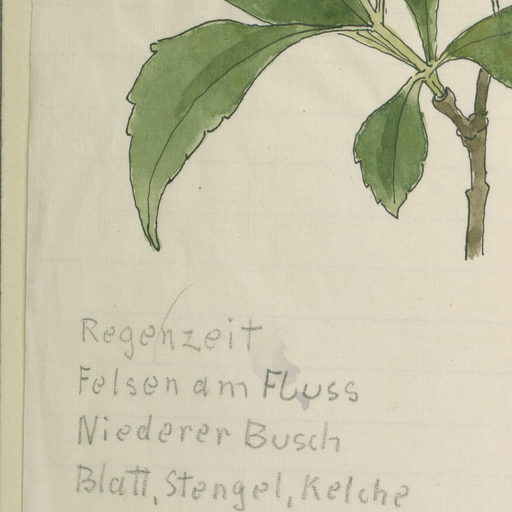 Regenzeit
Felsen am Fluss
Niederer Busch
Blatt, Stengel, Kelche